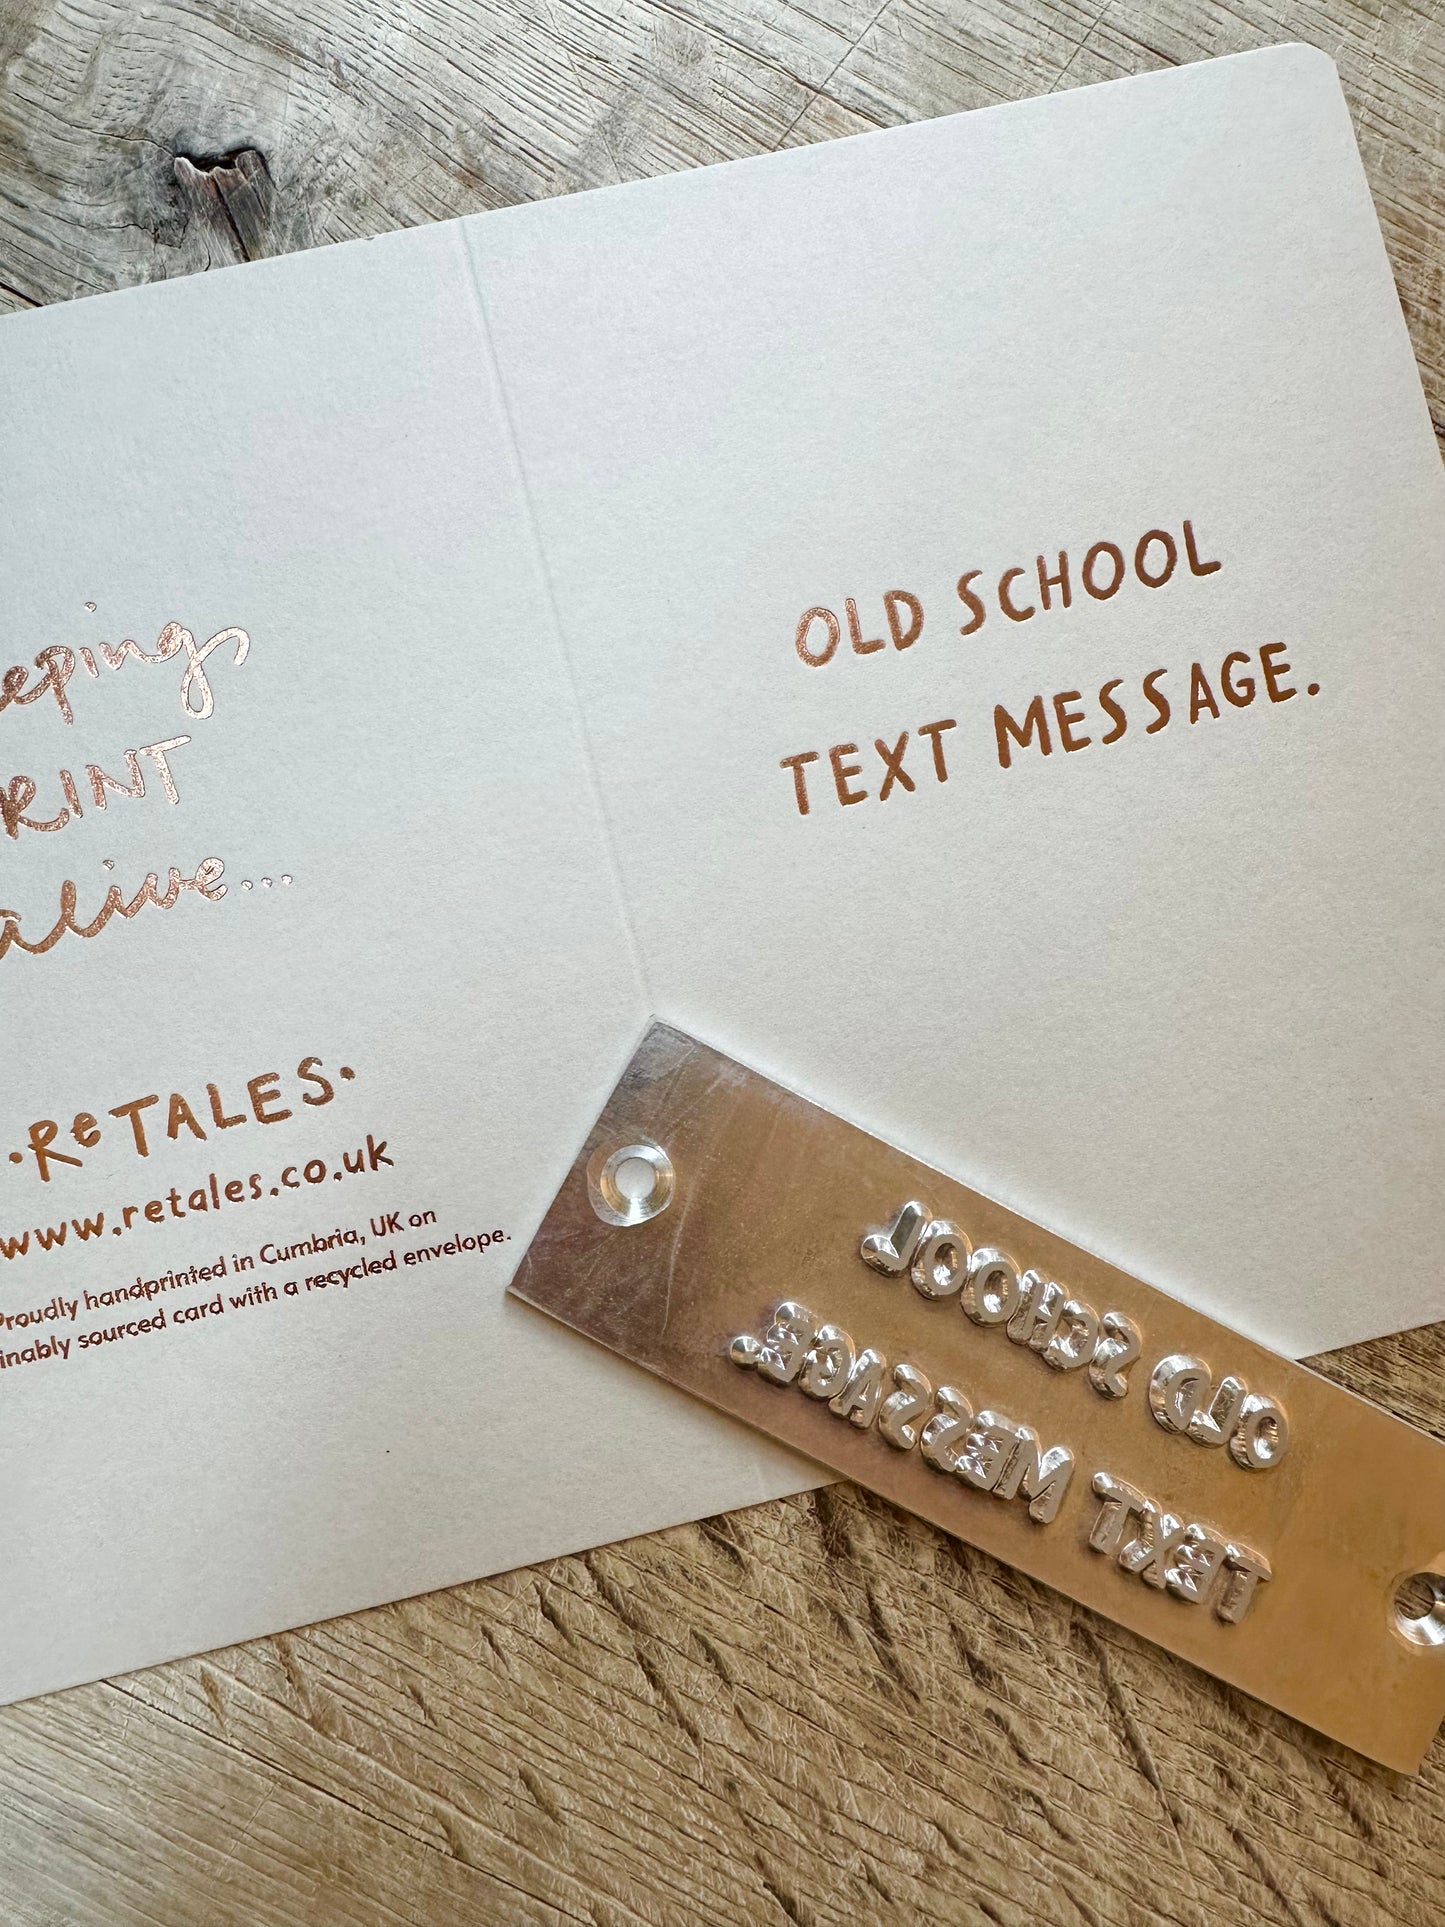 eeping
PRINT
alive...
·ReTALES·
www.retales.co.uk
Proudly handprinted in Cumbria, UK on
inably sourced card with a recycled envelope.
OLD SCHOOL
TEXT MESSAGE.
OLD SCHOOL
TEXT MESSAGE.